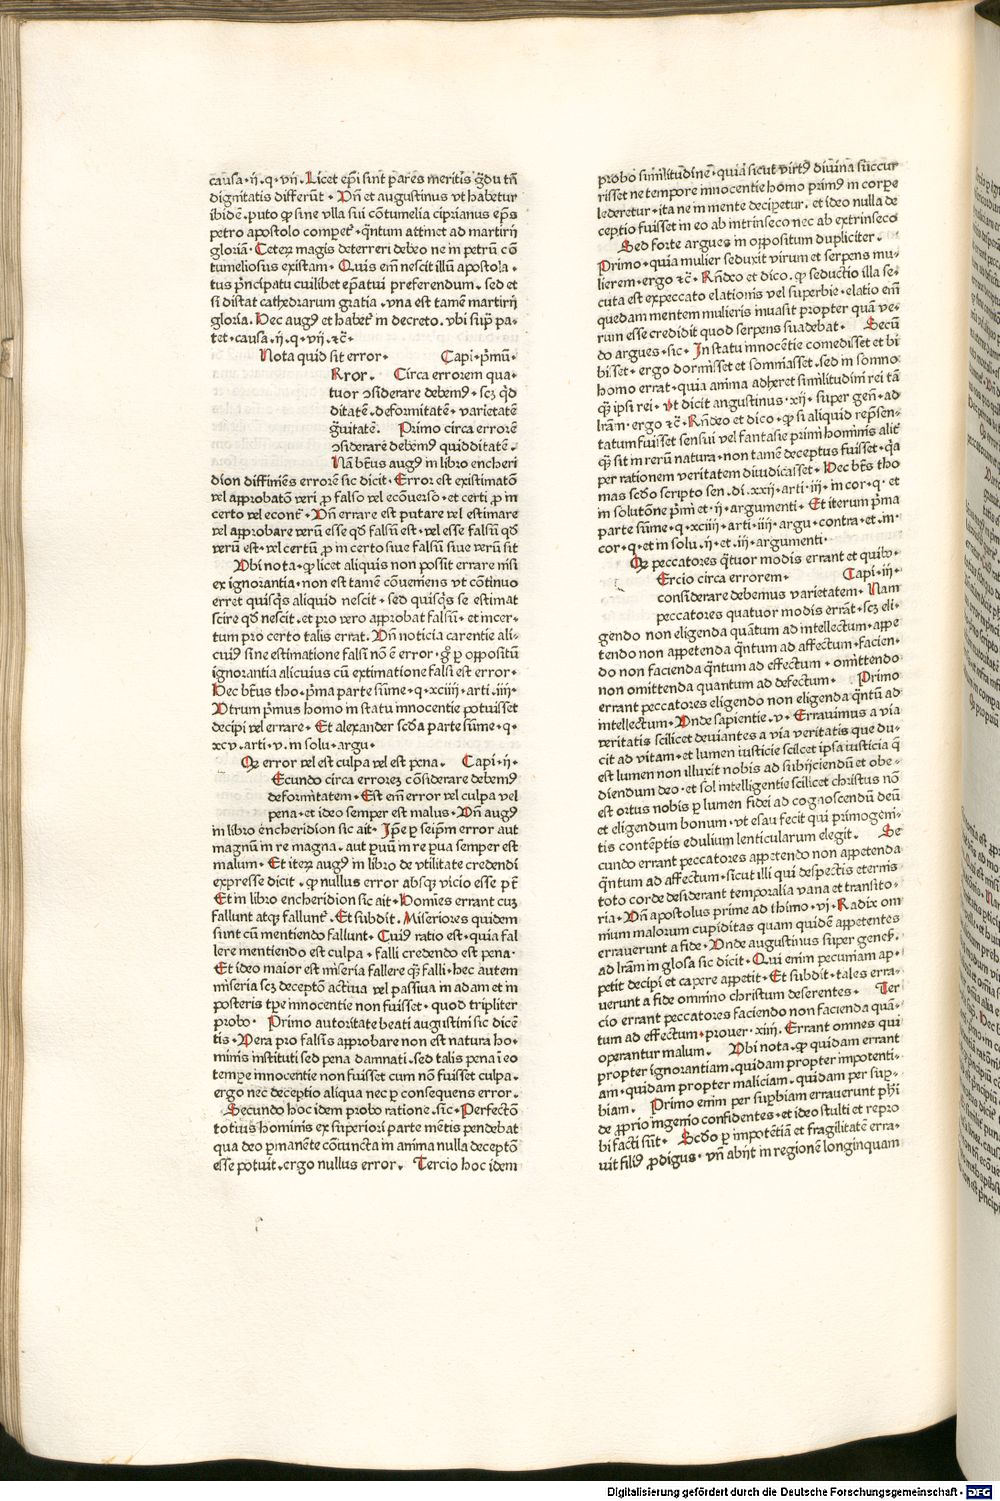 causa · ij · q · vij · Licet ep̄i sint pares meritis gͣdu tn̄
dignitatis differūt · Vn̄ et augustinus vt habetur
ibidē · puto ꝙ sine vlla sui cōtumelia ciprianus ep̄s
petro apostolo compet᷑ · qͣntum attinet ad martirij
gloriā · Ceteꝝ magis deterreri debeo ne in petrū cō
tumeliosus existam · Quis em̄ nescit illū apostola ·
tus pͥncipatu cuilibet ep̄atui preferendum · sed et
si distat cathedrarum gratia · vna est tamē martirij
gloria. Hec augꝰ et habet᷑ in decreto · vbi supͣ pa-
tet · causa · ij · q · vij · ⁊c̄ ·
Nota quid sit error · Capi · pͥmū ·
Rror · Circa errorem qua-
tuor ↄsiderare debemꝰ · scꝫ qͥd
ditatē · deformitatē · varietatē
gͣuitatē. Primo circa errorē
ↄsiderare debemꝰ quidditatē ·
Nā bt̄us augꝰ in libro encheri
dion diffiniēs errorē sic dicit · Error est existimatō
vel approbatō veri ꝓ falso vel ecōuerso · et certi ꝓ in
certo vel econt᷑ · Vn̄ errare est putare vel estimare
vel approbare verū esse qd̄ falsū est · vel esse falsū qd̄
verū est · vel certū ꝓ in certo siue falsū siue verū sit
Vbi nota · ꝙ licet aliquis non possit errare nisi
ex ignorantia · non est tamē cōueniens vt cōtinuo
erret quisqͥs aliquid nescit · sed quisqͥs se estimat
scire qd̄ nescit · et pro vero approbat falsū · et incer-
tum pro certo talis errat. Vn̄ noticia carentie ali-
cuiꝰ sine estimatione falsi nō ē error · gͦ ꝑ oppositū
ignorantia alicuius cū extimatione falsi est error ·
Hec bt̄us tho · pͥma parte sūme · q · xciiij · arti · iiij ·
Vtrum pͥmus homo in statu innocentie potuisset
decipi vel errare · Et alexander scd̄a parte sūme · q ·
xcv · arti · v · in solu · argu ·
Qꝫ error vel est culpa vel est pena. Capi · ij ·
Ecundo circa erroreꝫ cōsiderare debemꝰ
deformitatem · Est em̄ error vel culpa vel
pena · et ideo semper est malus · Vn̄ augꝰ
in libro encheridion sic ait · Ip̄e ꝑ seip̄m error aut
magnū in re magna · aut ꝑuū in re ꝑua semper est
malum · Et iteꝝ augꝰ in libro de vtilitate credendi
expresse dicit · ꝙ nullus error absqꝫ vicio esse pt̄
Et in libro encheridion sic ait · Homies errant cuꝫ
fallunt atqꝫ fallunt᷑ · Et subdit · Miseriores quidem
sunt cū mentiendo fallunt · Cuiꝰ ratio est · quia fal
lere mentiendo est culpa · falli credendo est pena ·
Et ideo maior est miseria fallere qͣ̄ falli · hec autem
miseria scꝫ deceptō actiua vel passiua in adam et in
posteris tp̄e innocentie non fuisset · quod tripliter
probo · Primo autoritate beati augustini sic dicē
tis · Vera pro falsis approbare non est natura ho-
minis instituti sed pena damnati · sed talis pena ī eo
tempe innocentie non fuisset cum nō fuisset culpa ·
ergo nec deceptio aliqua nec ꝑ consequens error ·
Secundo hoc idem probo ratione · sic · Perfectō
totius hominis ex superiori parte mētis pendebat
qua deo ꝑmanēte cōiuncta in anima nulla deceptō
esse potuit · ergo nullus error · Tercio hoc idem
probo similitudinē · quia sicut virtꝰ diuina succur
risset ne tempore innocentie homo primꝰ in corpe
lederetur · ita ne in mente deciperetur · et ideo nulla de
ceptio fuisset in eo ab intrinseco nec ab extrinseco
Sed forte argues in oppositum dupliciter ·
Primo · quia mulier seduxit virum et serpens mu-
lierem · ergo ⁊c̄ · Rn̄deo et dico · ꝙ seductio illa se-
cuta est expeccato elationis vel superbie · elatio em̄
quedam mentem mulieris inuasit propter quā ve-
rum esse credidit quod serpens suadebat · Secū
do argues · sic · In statu innocētie comedisset et bi
bisset · ergo dormisset et somniasset · sed in somno
homo errat · quia anima adheret similitudini rei tā
qͣ̄ ipsi rei · vt dicit angustinus · xij · super gen̄ · ad
lr̄am · ergo ⁊c̄ · Rn̄deo et dico · ꝙ si aliquid rep̄sen-
tatum fuisset sensui vel fantasie primi hominis alit᷑
qͣ̄ sit in rerū natura · non tamē deceptus fuisset · qͥa
per rationem veritatem diiudicasset · Hec bt̄s tho
mas scd̄o scripto sen · di · xxij · arti · iij · in cor · q · et
in solutōne pͥmi et · ij · argumenti · Et iterum pͥma
parte sūme · q · xciiij · arti · iiij · argu · contra · et · in ·
cor · q · et in solu · ij · et · iij · argumenti ·
Qꝫ peccatores qͣtuor modis errant et quibꝰ ·
Ercio circa errorem · Capi · iij ·
considerare debemus varietatem · Nam
peccatores quatuor modis errāt · scꝫ eli-
gendo non eligenda quātum ad intellectum · appe
tendo non appetenda qͣntum ad affectum · facien-
do non facienda qͣntum ad effectum · omittendo
non omittenda quantum ad defectum · Primo
errant peccatores eligendo non eligenda qͣntū ad
intellectum · Vnde sapientie · v · Errauimus a via
veritatis scilicet deuiantes a via veritatis que du-
cit ad vitam · et lumen iusticie scilcet ipsa iusticia q̄
est lumen non illuxit nobis ad subijciendū et obe-
diendum deo · et sol intelligentie scilicet christus nō
est ortus nobis ꝑ lumen fidei ad cognoscendū deū
et eligendum bonum · vt esau fecit qui primogeni-
tis contēptis edulium lenticularum elegit · Se
cundo errant peccatores appetendo non appetenda
qͣntum ad affectum · sicut illi qui despectis eternis
toto corde desiderant temporalia vana et transito-
ria · Vn̄ apostolus prime ad thimo · vj · Radix om
nium malorum cupiditas quam quidē appetentes
errauerunt a fide · Vnde augustinus super genes̄ ·
ad lr̄am in glosa sic dicit · Qui enim pecuniam ap-
petit decipi et capere appetit · Et subdit · tales erra-
uerunt a fide omnino christum deserentes · Ter
cio errant peccatores faciendo non facienda quā-
tum ad effectum · prouer · xiiij · Errant omnes qui
operantur malum · Vbi nota · ꝙ quidam errant
propter ignorantiam · quidam propter impotenti-
am · quidam propter maliciam · quidam per sup̄-
biam · Primo enim per suꝑbiam errauerunt phi
de ꝓprio ingenio confidentes · et ideo stulti et repro
bi facti sūt · Scd̄o ꝑ impotētiā et fragilitatē erra-
uit filiꝰ ꝓdigus · vn̄ abijt in regionē longinquam
Digitalisierung gefördert durch die Deutsche Forschungsgemeinschaft - DFG